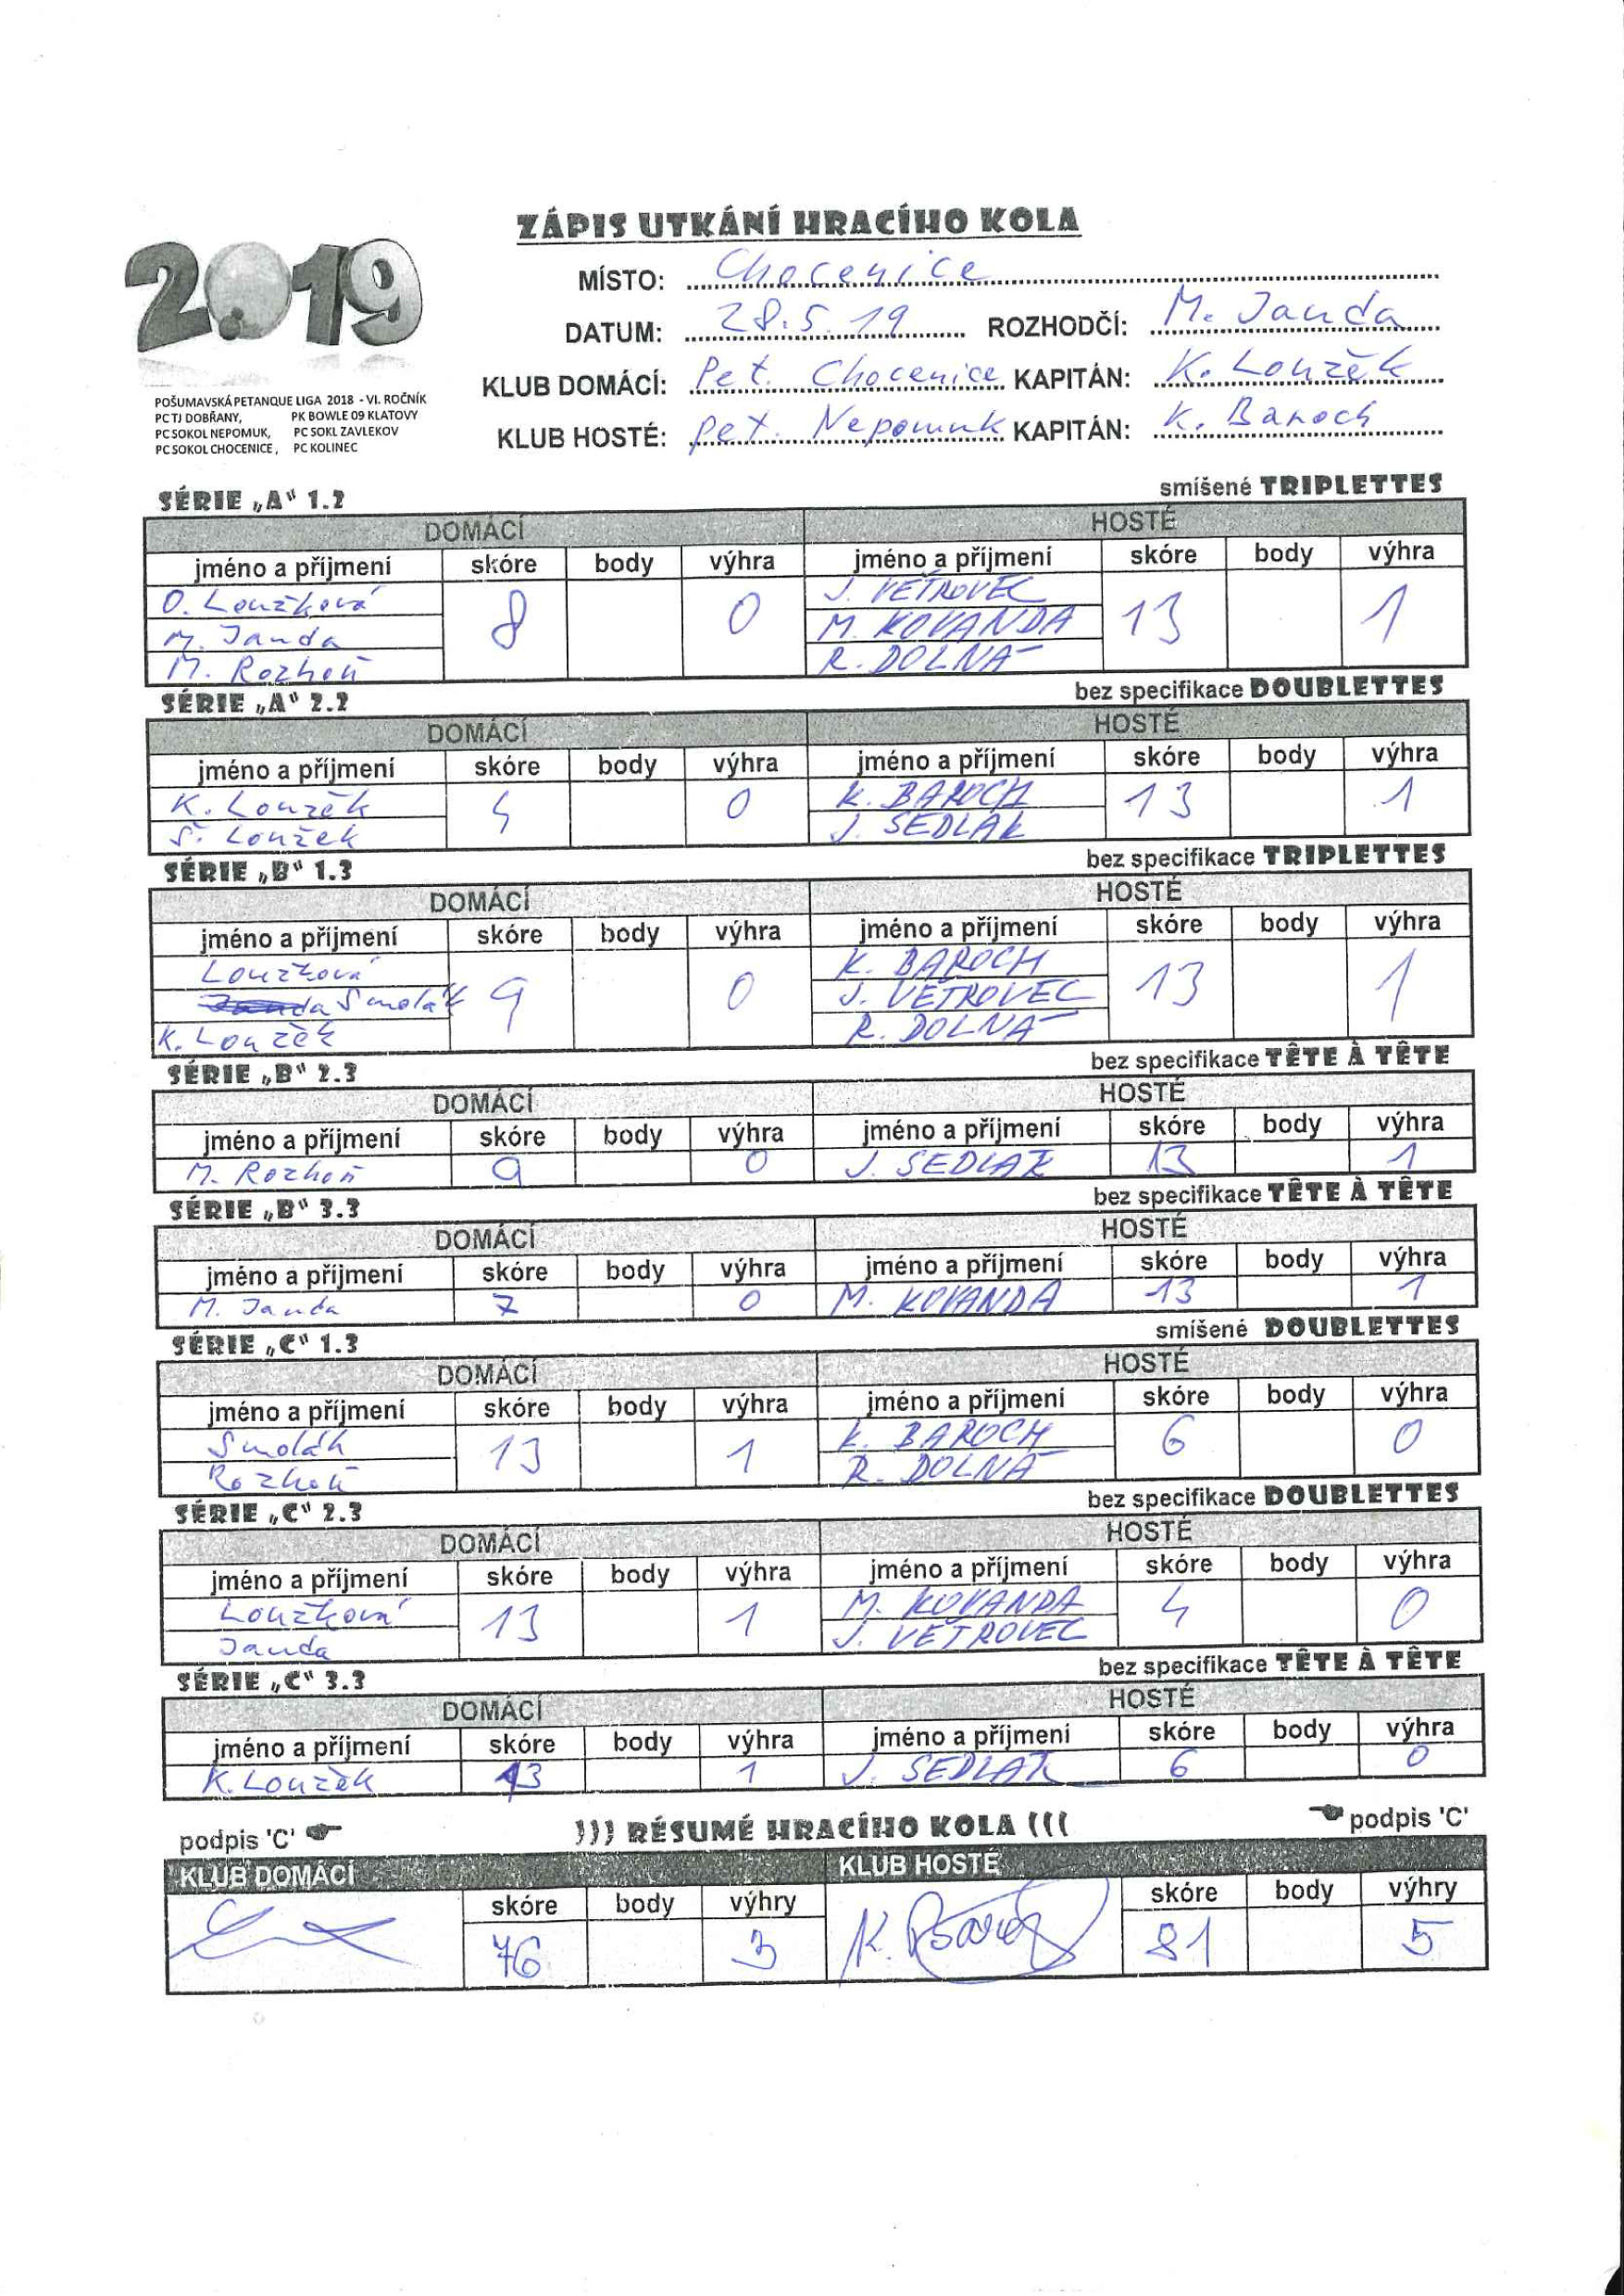 ZÁPIS UTKÁNÍ HRACÍHO KOLA
2019
MÍSTO: Chocenice
DATUM: 28.5.19 ROZHODČÍ: M. Janda
KLUB DOMÁCÍ: Pet. Chocenice KAPITÁN: K. Loužek
KLUB HOSTÉ: Pet. Nepomuk KAPITÁN: K. Baroch
POŠUMAVSKÁ PETANQUE LIGA 2018 - VI. ROČNÍK
PC TJ DOBŘANY, PK BOWLE 09 KLATOVY
PC SOKOL NEPOMUK, PC SOKL ZAVLEKOV
PC SOKOL CHOCENICE, PC KOLINEC
SÉRIE „A“ 1.2 smíšené TRIPLETTES
DOMÁCÍ HOSTÉ
jméno a příjmení skóre body výhra jméno a příjmení skóre body výhra
O. Loužková 8 0 J. VĚTROVEC 13 1
M. Janda M. KOVANDA
M. Rozhoň R. DOLNÁ
SÉRIE „A“ 2.2 bez specifikace DOUBLETTES
DOMÁCÍ HOSTÉ
jméno a příjmení skóre body výhra jméno a příjmení skóre body výhra
K. Loužek 4 0 K. BAROCH 13 1
Š. Loužek J. SEDLÁK
SÉRIE „B“ 1.3 bez specifikace TRIPLETTES
DOMÁCÍ HOSTÉ
jméno a příjmení skóre body výhra jméno a příjmení skóre body výhra
Loužková 9 0 K. BAROCH 13 1
Smolák J. VĚTROVEC
K. Loužek R. DOLNÁ
SÉRIE „B“ 2.3 bez specifikace TÊTE À TÊTE
DOMÁCÍ HOSTÉ
jméno a příjmení skóre body výhra jméno a příjmení skóre body výhra
M. Rozhoň 9 0 J. SEDLÁK 13 1
SÉRIE „B“ 3.3 bez specifikace TÊTE À TÊTE
DOMÁCÍ HOSTÉ
jméno a příjmení skóre body výhra jméno a příjmení skóre body výhra
M. Janda 7 0 M. KOVANDA 13 1
SÉRIE „C“ 1.3 smíšené DOUBLETTES
DOMÁCÍ HOSTÉ
jméno a příjmení skóre body výhra jméno a příjmení skóre body výhra
Smolák 13 1 K. BAROCH 6 0
Rozhoň R. DOLNÁ
SÉRIE „C“ 2.3 bez specifikace DOUBLETTES
DOMÁCÍ HOSTÉ
jméno a příjmení skóre body výhra jméno a příjmení skóre body výhra
Loužková 13 1 M. KOVANDA 4 0
Janda J. VĚTROVEC
SÉRIE „C“ 3.3 bez specifikace TÊTE À TÊTE
DOMÁCÍ HOSTÉ
jméno a příjmení skóre body výhra jméno a příjmení skóre body výhra
K. Loužek 13 1 J. SEDLÁK 6 0
podpis 'C' ))) RÉSUMÉ HRACÍHO KOLA ((( podpis 'C'
KLUB DOMÁCÍ KLUB HOSTÉ
skóre body výhry skóre body výhry
76 3 K. Baroch 81 5